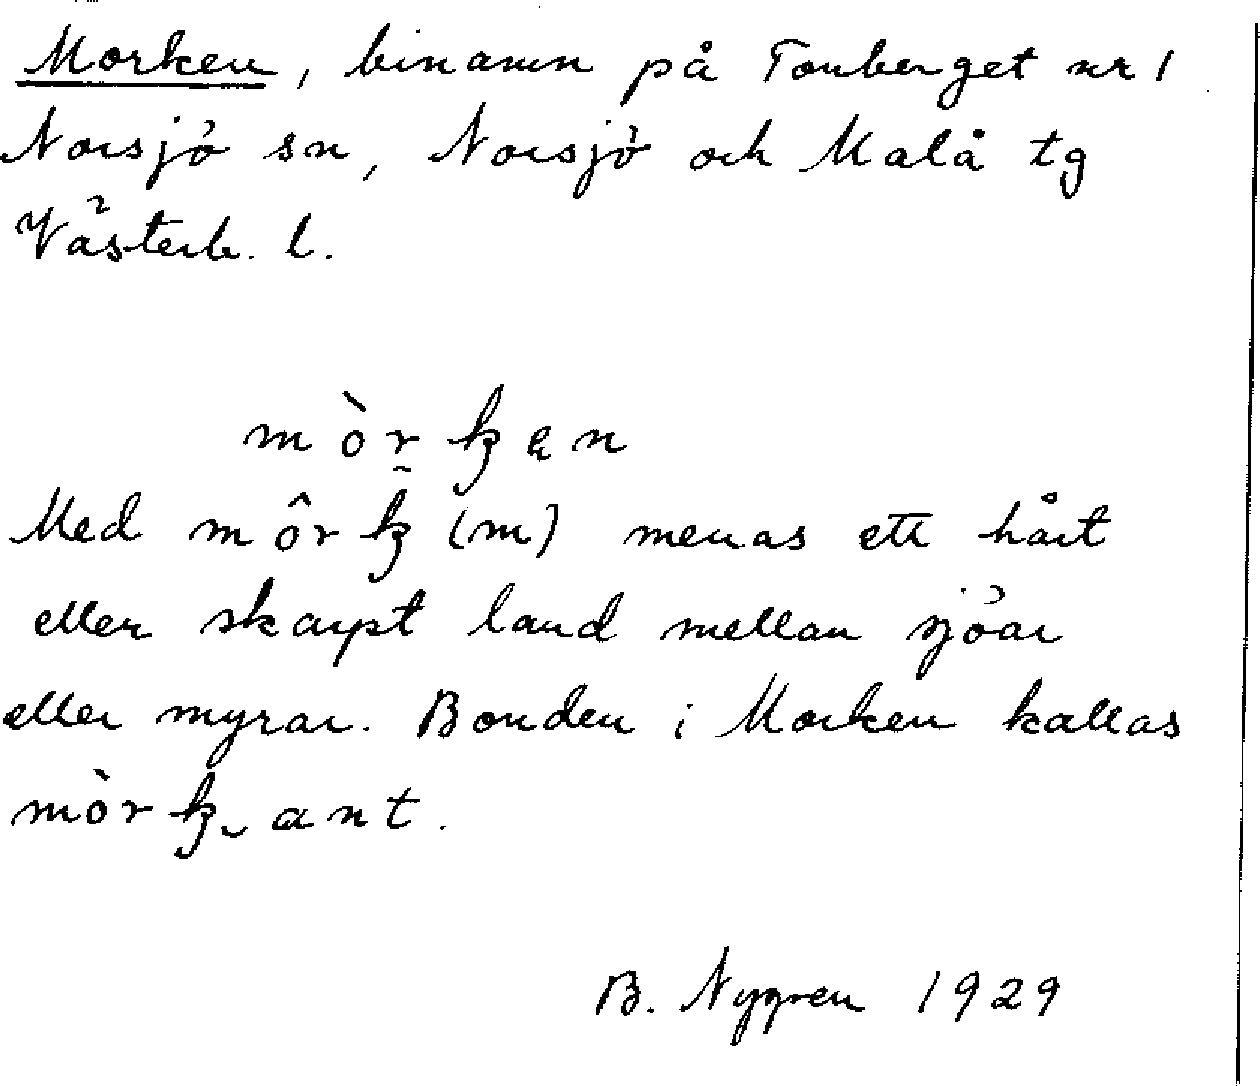 Morken, binamn på Tomberget nr 1
Norsjö sn, Norsjö och Malå tg
Västerb. l.
mòrken
Med môrk (m) menas ett hårt
eller skarpt land mellan sjöar
eller myrar. Bonden i Morken kallas
mòrk ant.
B. Nygren 1929